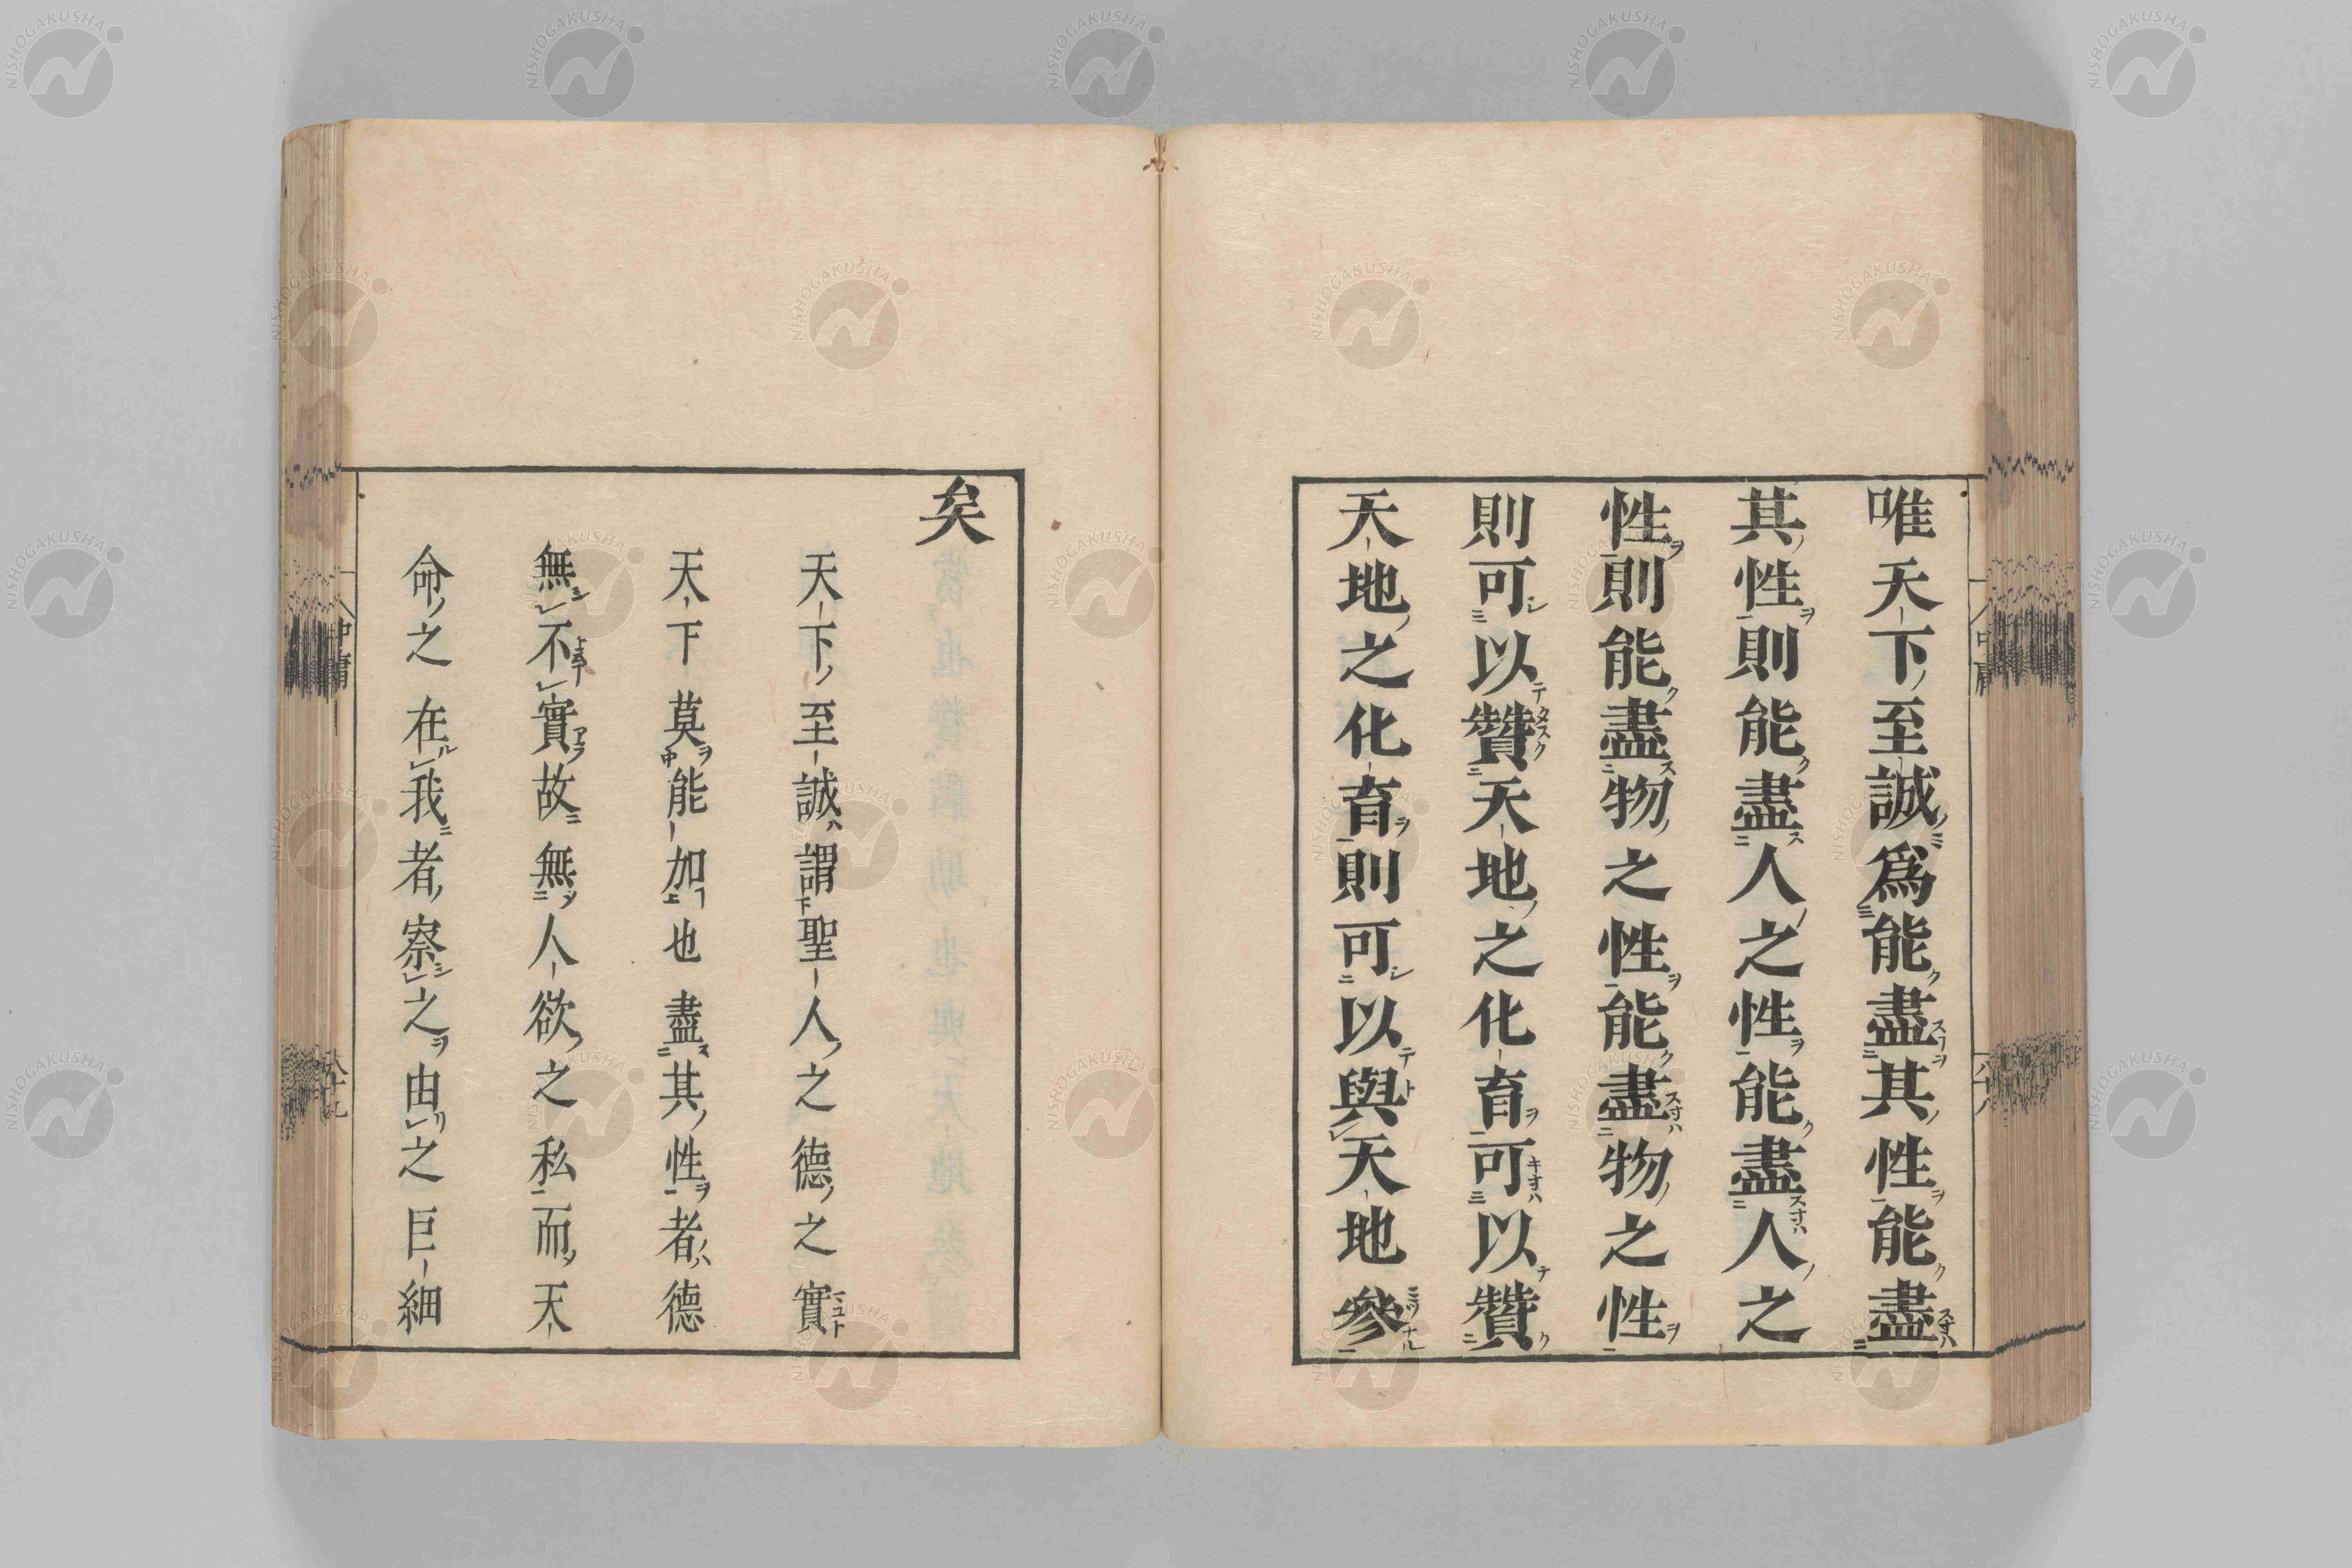 唯天下至誠爲能盡其性能盡
其性則能盡人之性能盡人之
性則能盡物之性能盡物之性
則可以贊天地之化育可以贊
天地之化育則可以與天地參
矣
天下至誠謂聖人之德之實
天下莫能加也盡其性者德
無不實故無人欲之私而天
命之在我者察之由之巨細
中庸
NISHOGAKUSHA